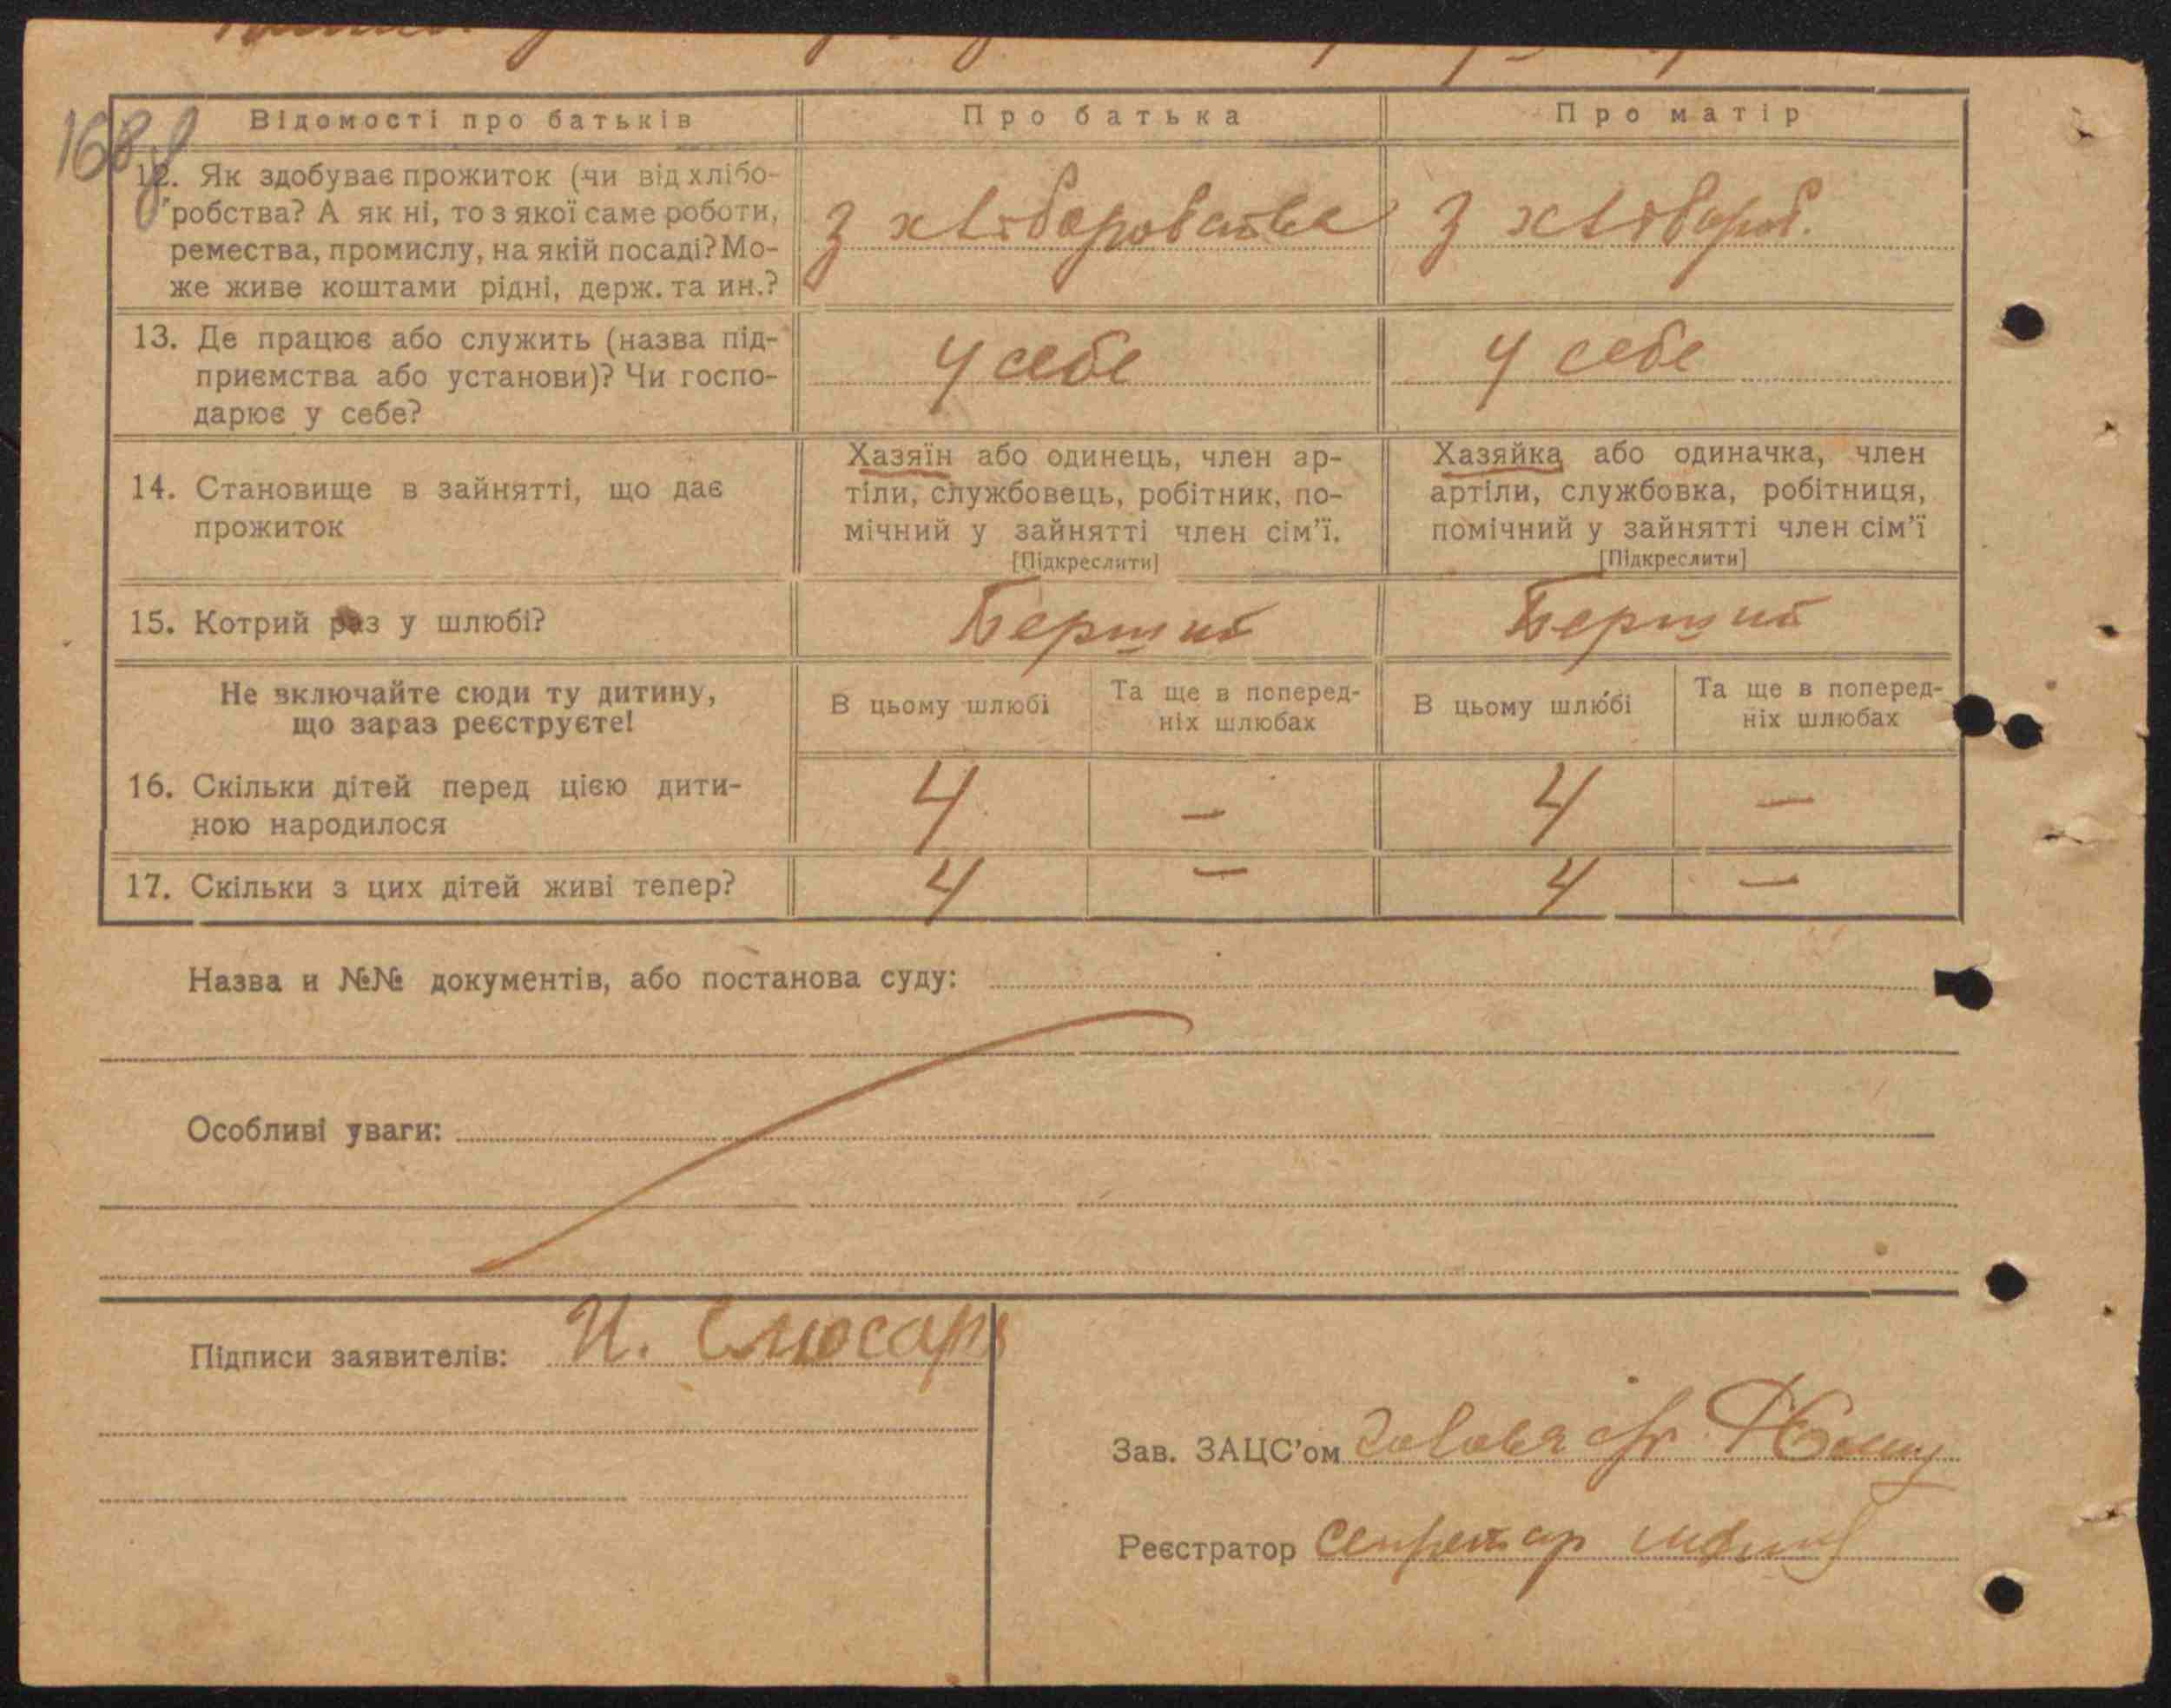 Відомості про батьків
Про батька
Про матір
12. Як здобуває прожиток (чи від хлібо-
робства? А як ні, то з якої саме роботи,
ремества, промислу, на якій посаді? Мо-
же живе коштами рідні, держ. та ин.?
з хліборобства
з хлібороб.
13. Де працює або служить (назва під-
приємства або установи)? Чи госпо-
дарює у себе?
у себе
у себе
14. Становище в зайнятті, що дає
прожиток
Хазяїн або одинець, член ар-
тіли, службовець, робітник, по-
мічний у зайнятті член сім'ї.
[Підкреслити]
Хазяйка або одиначка, член
артіли, службовка, робітниця,
помічний у зайнятті член сім'ї
[Підкреслити]
15. Котрий раз у шлюбі?
Перший
Перший
Не включайте сюди ту дитину,
що зараз реєструєте!
В цьому шлюбі
Та ще в поперед-
ніх шлюбах
В цьому шлюбі
Та ще в поперед-
ніх шлюбах
16. Скільки дітей перед цією дити-
ною народилося
4
–
4
–
17. Скільки з цих дітей живі тепер?
4
–
4
–
Назва и №№ документів, або постанова суду:
Особливі уваги:
Підписи заявителів: И. Слюсарь
Зав. ЗАЦС'ом Голова с/р
Реєстратор Секретар